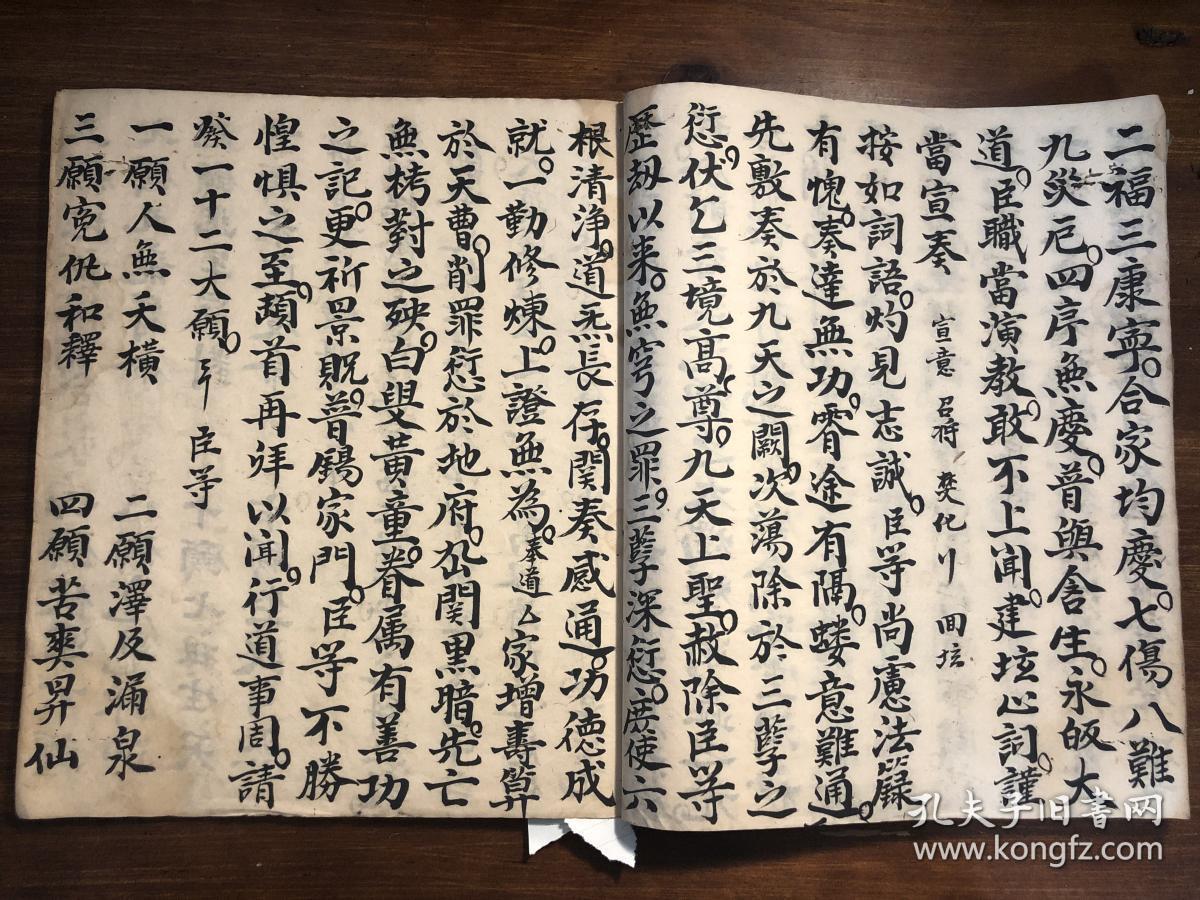 二福三康寧。合家均慶。七傷八難
九災厄。四序無慶。普與含生。永皈大
道。臣職當演教。敢不上聞。建坛心詞。謹
當宣奏 宣意 召将 焚化 回坛
按如詞語。灼見志誠。臣等尚慮法籙
有愧。奏達無功。霄途有隔。螻意難通。
先敷奏於九天之闕。次蕩除於三孽之
愆。伏乞三境高尊。九天上聖。赦除臣等
歷刼以来。無穹之罪。三孽深愆。庶使六
根清浄。道炁長存。関奏感通。功德成
就。一勤修煉。上證無為。奉道厶家增壽算
於天曹。削罪愆於地府。公関黑暗。先亡
無栲對之殃。白叟黄童。眷属有善功
之記。更祈景貺。普錫家門。臣等不勝
惶惧之至。頴首再拜以聞。行道事周。請
發一十二大願。 臣等
一願人無夭橫 二願澤及漏泉
三願寃仇和釋 四願苦爽昇仙
孔夫子旧書网
www.kongfz.com